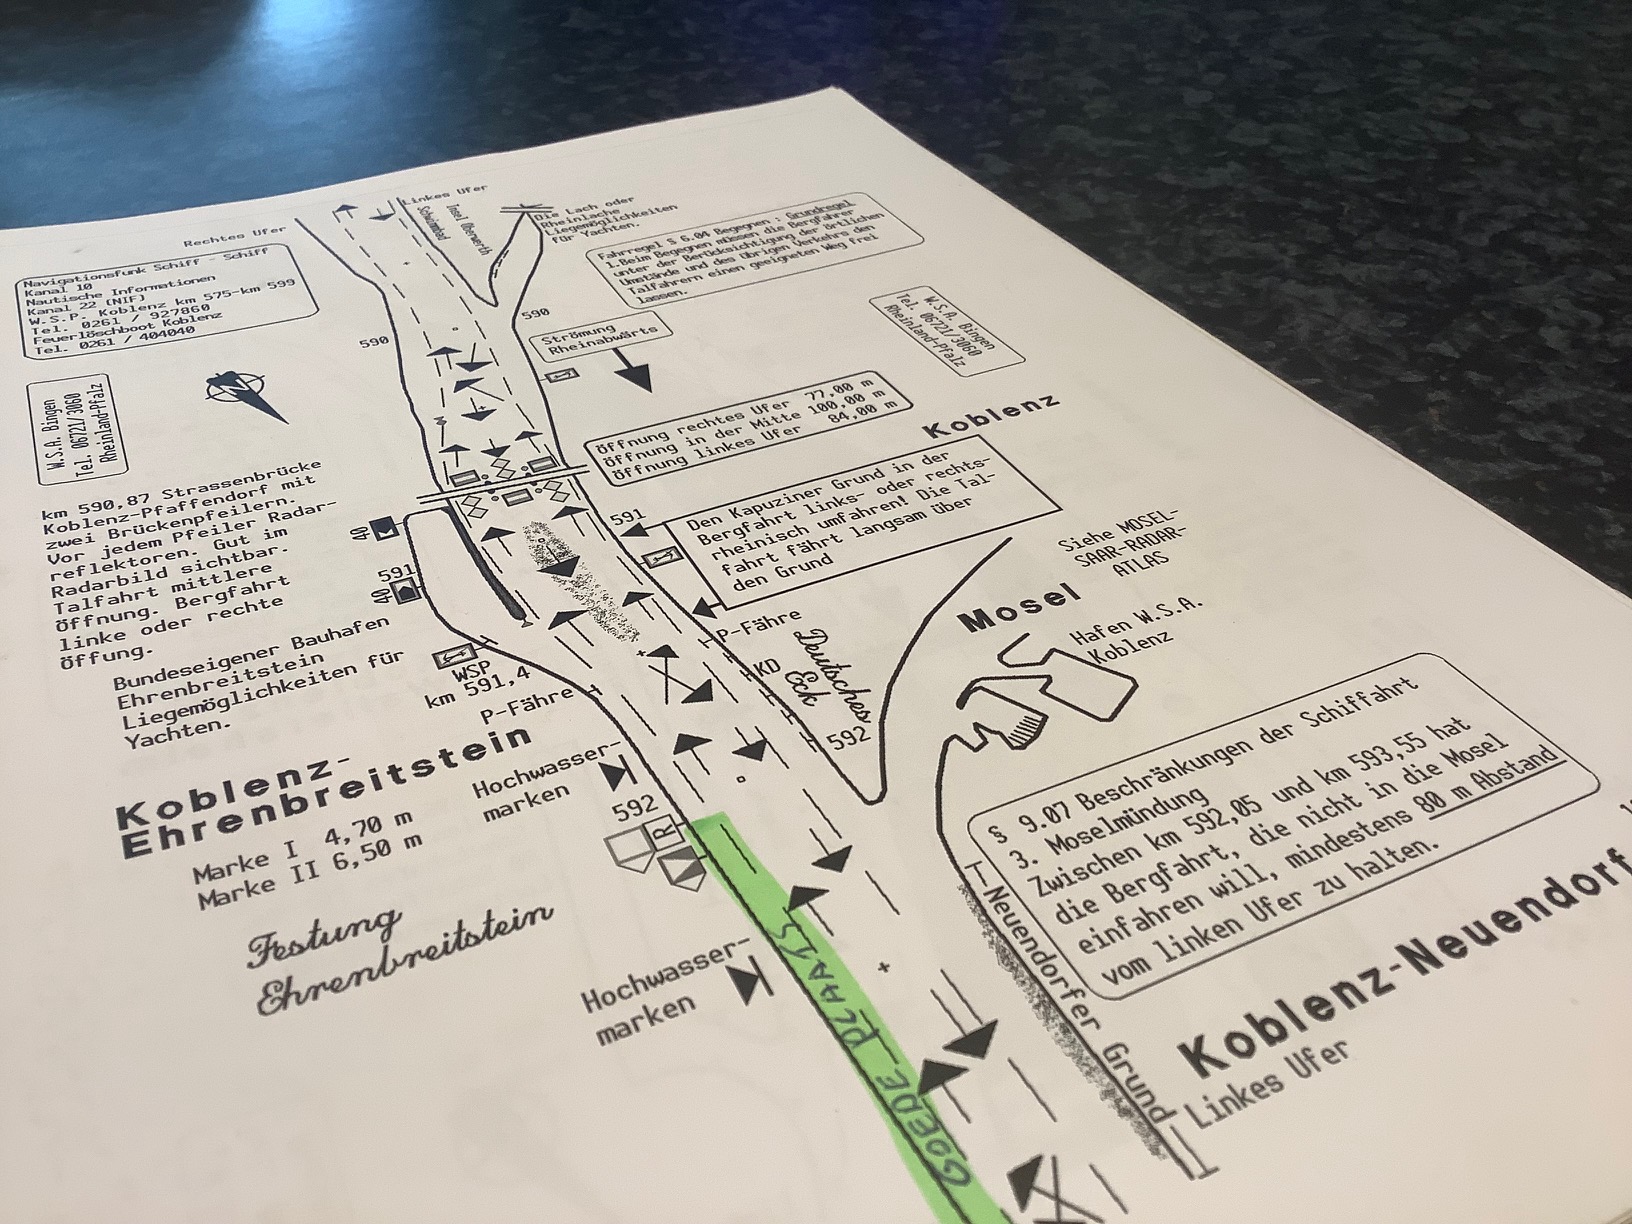 Linkes Ufer
Rechtes Ufer
Schwimmbad
Insel Oberwerth
Die Lach oder
Rheinlache
Liegemöglichkeiten
für Yachten.
Navigationsfunk Schiff - Schiff
Kanal 10
Nautische Informationen
Kanal 22 (NIF)
W.S.P. Koblenz km 575-km 599
Tel. 0261 / 927860
Feuerlöschboot Koblenz
Tel. 0261 / 404040
Fahrregel § 6.04 Begegnen : Grundregel
1.Beim Begegnen müssen die Bergfahrer
unter der Berücksichtigung der örtlichen
Umstände und des übrigen Verkehrs den
Talfahrern einen geeigneten Weg frei
lassen.
590
590
Strömung
Rheinabwärts
W.S.A. Bingen
Tel. 06721/3060
Rheinland-Pfalz
W.S.A. Bingen
Tel. 06721/3060
Rheinland-Pfalz
Öffnung rechtes Ufer 77,00 m
Öffnung in der Mitte 100,00 m
Öffnung linkes Ufer 84,00 m
Koblenz
km 590,87 Strassenbrücke
Koblenz-Pfaffendorf mit
zwei Brückenpfeilern.
Vor jedem Pfeiler Radar-
reflektoren. Gut im
Radarbild sichtbar.
Talfahrt mittlere
Öffnung. Bergfahrt
linke oder rechte
Öffung.
591
Den Kapuziner Grund in der
Bergfahrt links- oder rechts-
rheinisch umfahren! Die Tal-
fahrt fährt langsam über
den Grund
40
591
40
Siehe MOSEL-
SAAR-RADAR-
ATLAS
Mosel
Hafen W.S.A.
Koblenz
P-Fähre
KD
Deutsches
Eck
592
Bundeseigener Bauhafen
Ehrenbreitstein
Liegemöglichkeiten für
Yachten.
WSP
km 591,4
P-Fähre
Koblenz-
Ehrenbreitstein
Hochwasser-
marken
592
R
Marke I 4,70 m
Marke II 6,50 m
Festung
Ehrenbreitstein
Hochwasser-
marken
GOEDE PLAATS
§ 9.07 Beschränkungen der Schiffahrt
3. Moselmündung
Zwischen km 592,05 und km 593,55 hat
die Bergfahrt, die nicht in die Mosel
einfahren will, mindestens 80 m Abstand
vom linken Ufer zu halten.
Neuendorfer Grund
Koblenz-Neuendorf
Linkes Ufer